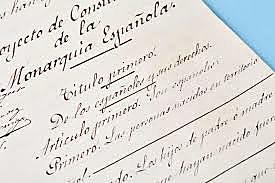 royecto de Consti
de la
Monarquia Española.
Título primero.
De los españoles y sus derechos.
Artículo primero. Son españoles:
Primero. Las personas nacidas en territorio
Los hijos de padre ó madre
hayan nacido fuera